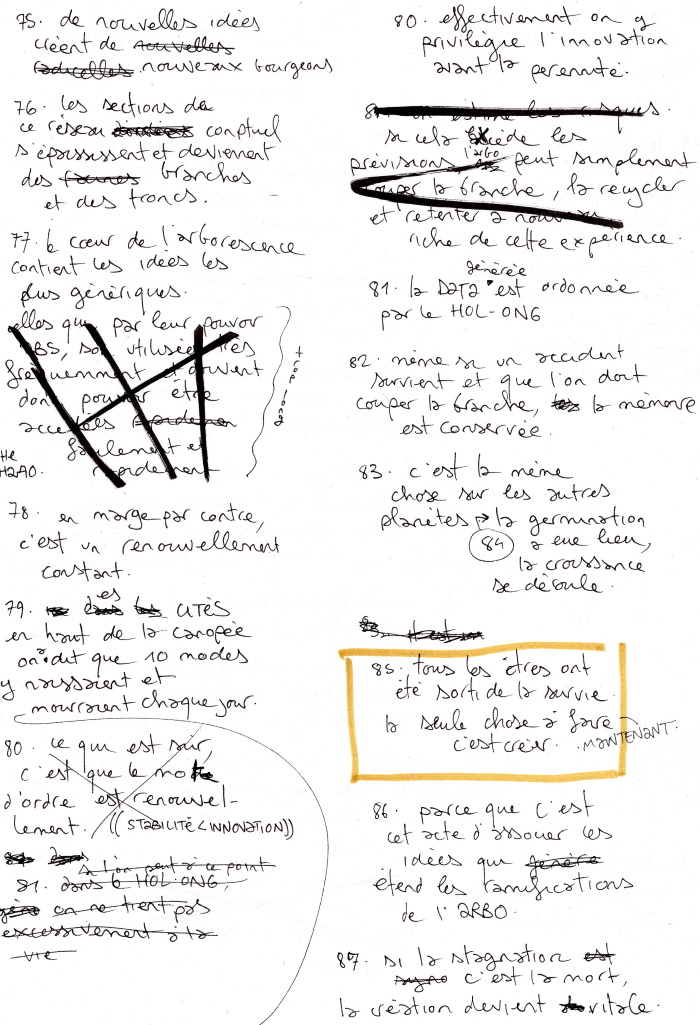 75. de nouvelles idées
créent de nouvelles
radicelles nouveaux bourgeons
76. les sections de
ce réseau conptuel
s'épaississent et deviennent
des branches
et des troncs.
77. le cœur de l'arborescence
contient les idées les
plus génériques.
elles qui par leur pouvoir
utilisées très
fréquemment et souvent
donc pouvoir être
accédées rapidement
facilement et
rapidement
trop long
78. en marge par contre,
c'est un renouvellement
constant.
79. dans les es CITÉS
en haut de la canopée
on dit que 10 modes
y naissaient et
mourraient chaque jour.
80. ce qui est sur,
c'est que le mot
d'ordre est renouvel-
lement. ((STABILITÉ < INNOVATION))
si l'on peut à ce point
81. dans le HOL-ONG,
on ne tient pas
excessivement à la
vie
80. effectivement on y
privilégie l'innovation
avant la perennité.
81. on estime les risques.
si cela excède les
prévisions, l'arbo peut simplement
couper la branche, la recycler
et retenter à nouveau,
riche de cette expérience.
générée
81. la DATA est ordonnée
par le HOL-ONG
82. même si un accident
survient et que l'on doit
couper la branche, la mémoire
est conservée.
83. c'est la même
chose sur les autres
planètes la germination
84 a eue lieu,
la croissance
se déroule.
85. tous les êtres ont
été sorti de la survie.
la seule chose à faire
c'est créer. MAINTENANT.
86. parce que c'est
cet acte d'associer les
idées qui génère
étend les ramifications
de l'ARBO.
87. si la stagnation est
syno c'est la mort,
la création devient vitale.